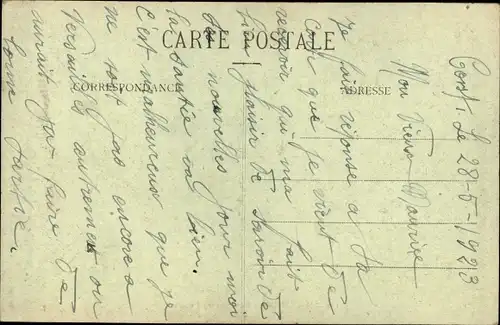 CARTE POSTALE
CORRESPONDANCE
ADRESSE
Le 28-5-1923
Mon Vieux Maurice
Je fais réponse a ta
que je vient de
recevoir qui ma fait
plaisir de savoir de
nouvelles pour moi
la santée va bien.
c'est malheureux que je
ne soit pas encore a
Versailles autrement on
aurait pu faire de
bonne partie.